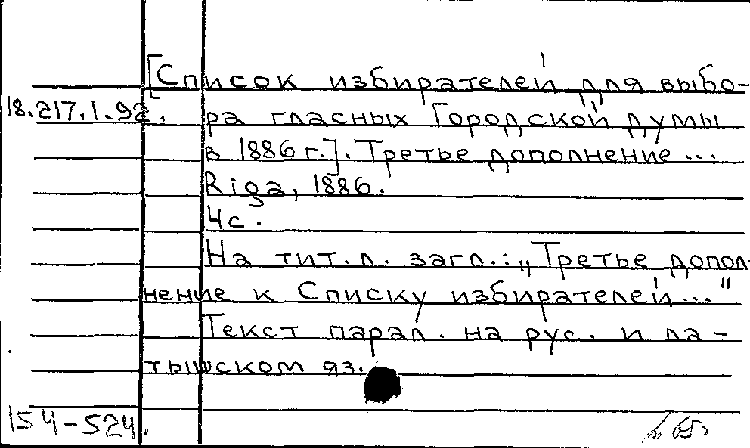 [Список избирателей для выбо-
18.217.1.92. ра гласных Городской думы
в 1886 г.]. Третье дополнение...
Riga, 1886.
4с.
На тит.л. загл.: „Третье допол-
нение к Списку избирателей..."
Текст парал. на рус. и ла-
тышском яз.
154-524.